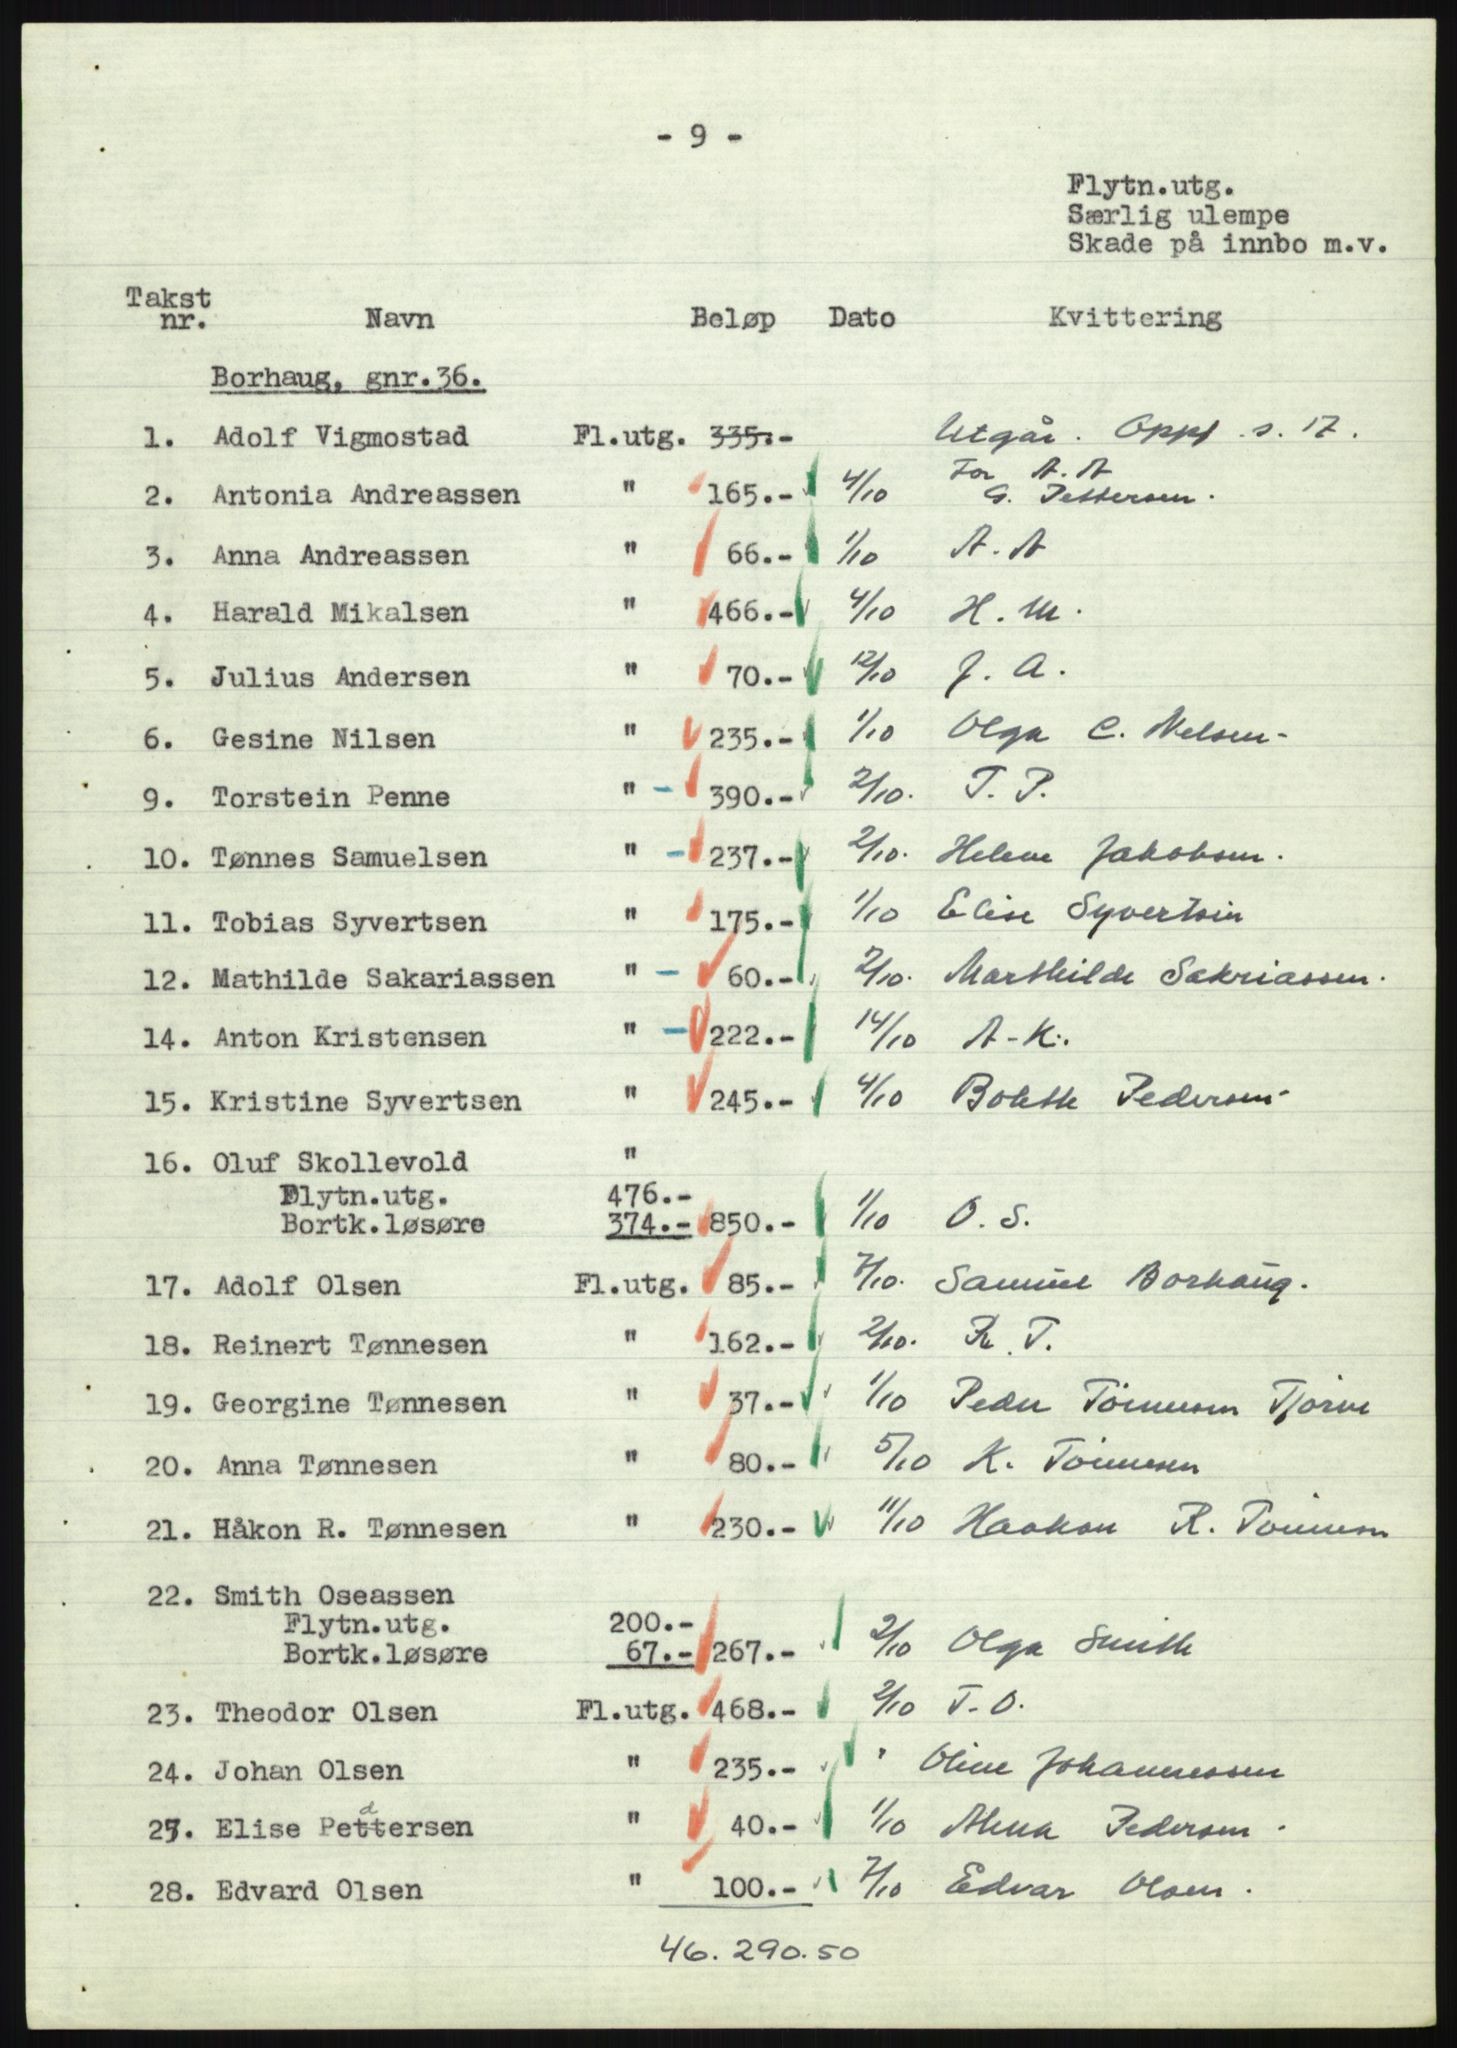 - 9 -
Flytn.utg.
Særlig ulempe
Skade på innbo m.v.
Takst nr. Navn Beløp Dato Kvittering
Borhaug, gnr.36.
1. Adolf Vigmostad Fl.utg. 335.- Utgår. Oppf. s. 17.
For A. A
2. Antonia Andreassen " 165.- 4/10 G. Pettersen.
3. Anna Andreassen " 66.- 1/10 A. A
4. Harald Mikalsen " 466.- 4/10 H. M.
5. Julius Andersen " 70.- 12/10 J. A.
6. Gesine Nilsen " 235.- 1/10 Olga C. Nelsen-
9. Torstein Penne " - 390.- 2/10. T. P.
10. Tønnes Samuelsen " - 237.- 2/10. Helene Jakobsen.
11. Tobias Syvertsen " 175.- 1/10 Elise Syvertsin
12. Mathilde Sakariassen " - 60.- 2/10. Marthilde Sakriassen.
14. Anton Kristensen " - 222.- 14/10 A-K.
15. Kristine Syvertsen " 245.- 4/10 Bolette Pedersen-
16. Oluf Skollevold "
Flytn.utg. 476.-
Bortk.løsøre 374.- 850.- 1/10 O. S.
17. Adolf Olsen Fl.utg. 85.- 7/10. Samuel Borhaug.
18. Reinert Tønnesen " 162.- 2/10. R. T.
19. Georgine Tønnesen " 37.- 1/10 Peder Tönnesen Tjörve
20. Anna Tønnesen " 80.- 5/10 K. Tönnesen
21. Håkon R. Tønnesen " 230.- 11/10 Haakon R. Tönnesen
22. Smith Oseassen
Flytn.utg. 200.-
Bortk.løsøre 67.- 267.- 2/10 Olga Smith
23. Theodor Olsen Fl.utg. 468.- 2/10 T-O.
24. Johan Olsen " 235.- " Oline Johannessen
d
27. Elise Pettersen " 40.- 1/10 Pedersen.
28. Edvard Olsen " 100.- 7/10 Edvar Olsen.
46.290.50